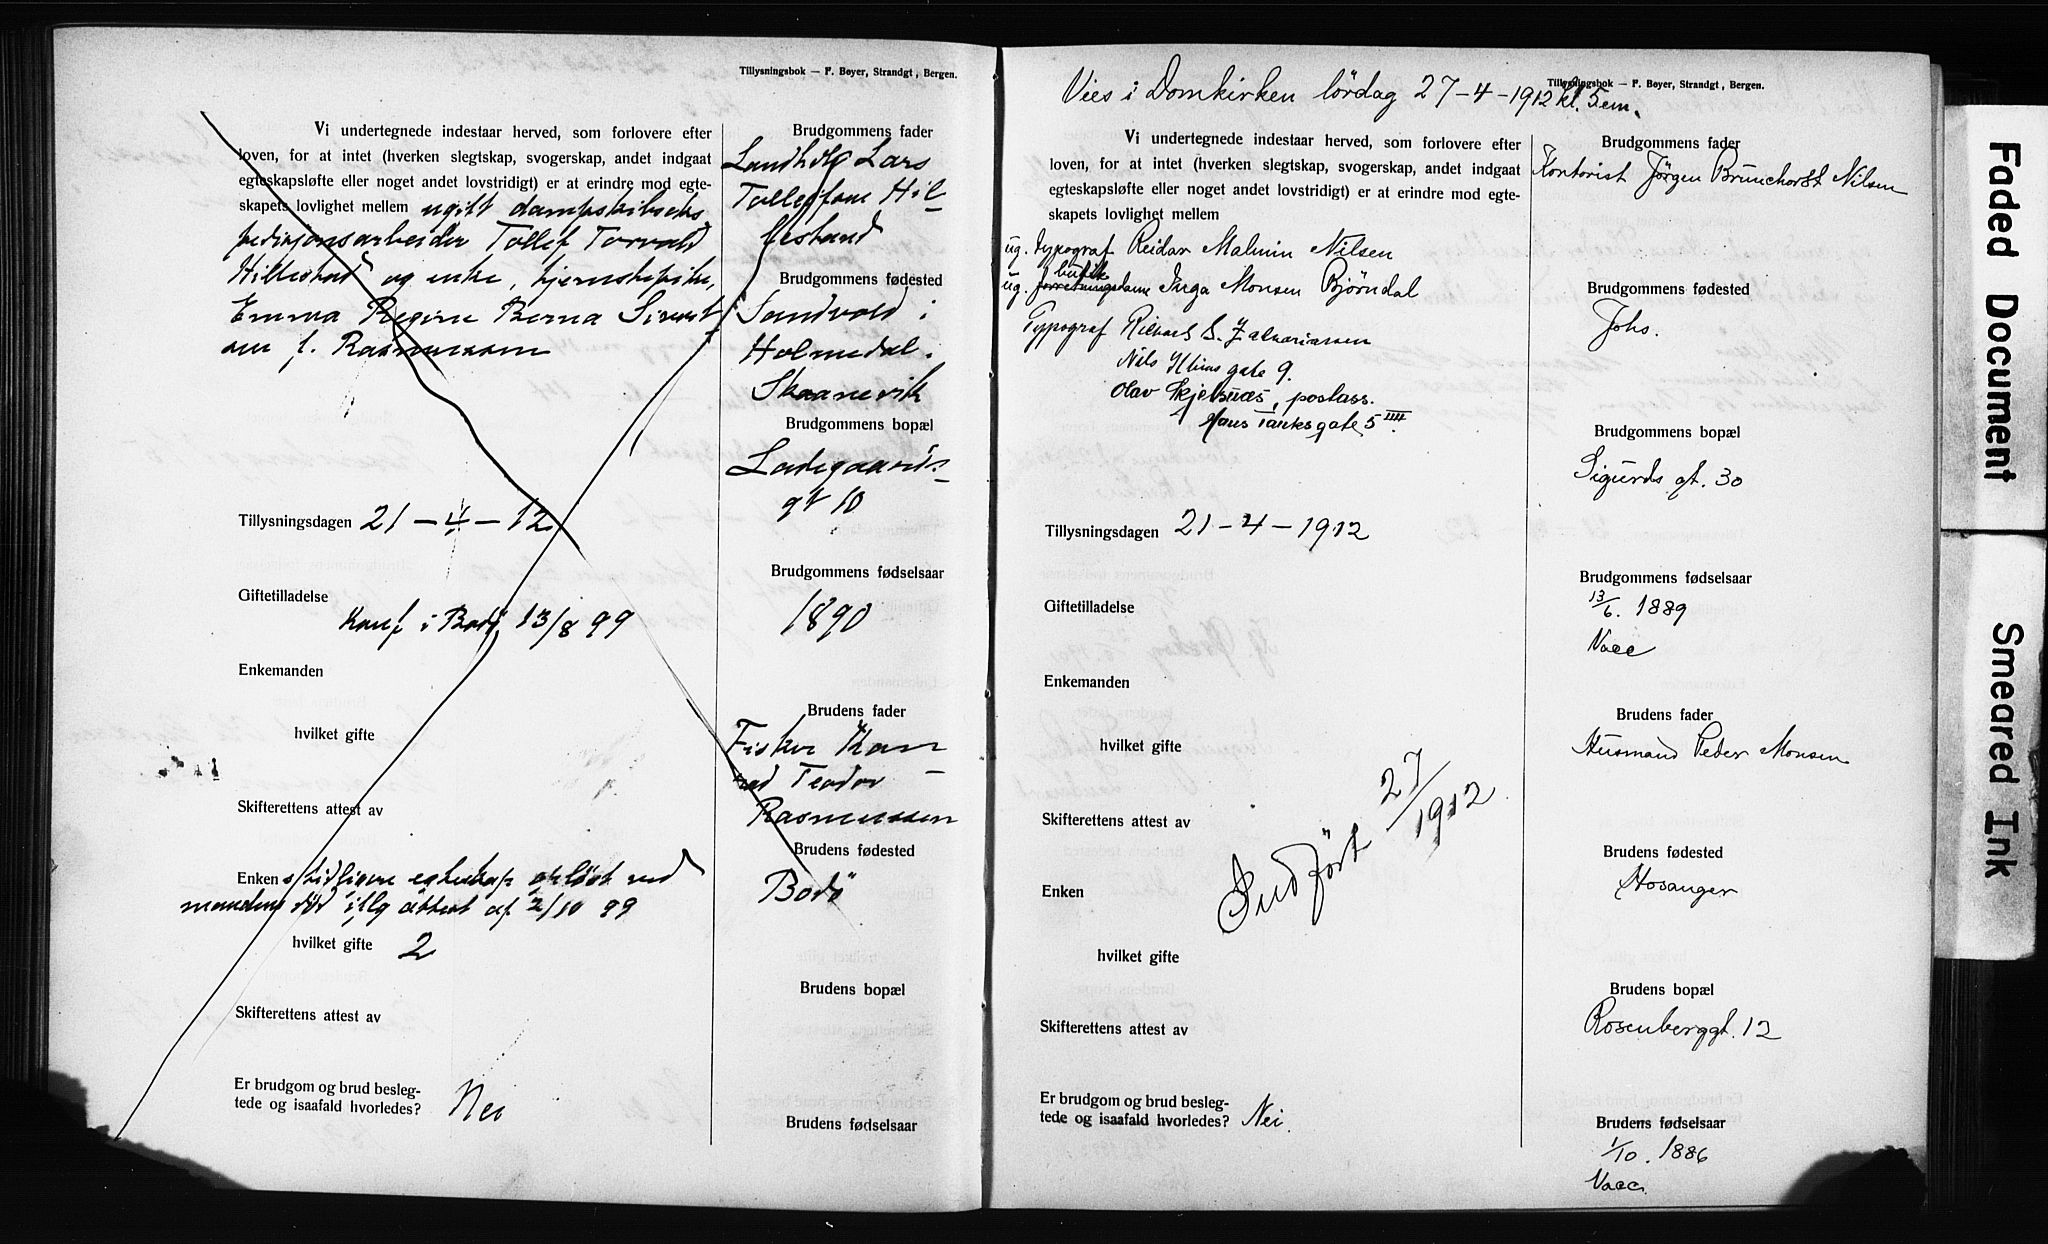 Tillysningsbok — F. Beyer, Strandgt, Bergen.
Vi undertegnede indestaar herved, som forlovere efter
loven, for at intet (hverken slegtskap, svogerskap, andet indgaat
egteskapsløfte eller noget andet lovstridigt) er at erindre mod egte-
skapets lovlighet mellem ugift dampskibseks
pedisjonsarbeider Tollef Torvald
Hillestad og enke, hjemstepike,
Emma Regine Berna Sivert
sen f. Rasmussen
Tillysningsdagen 21-4-12
Giftetilladelse
Konf i Bodö 13/8 99
Enkemanden
hvilket gifte
Skifterettens attest av
Enkens tidligere egteskap opløst ved
mandens död iflg attest af 2/10 99
hvilket gifte 2
Skifterettens attest av
Er brudgom og brud besleg-
tede og isaafald hvorledes? Nei
Brudgommens fader
Landhdlg Lars
Tollefsen Hil-
lestad
Brudgommens fødested
Sandvold i
Holmedal.
Skaanevik
Brudgommens bopæl
Ladegaards-
gt 10
Brudgommens fødselsaar
1890
Brudens fader
Fisker Kon-
rad Teodor
Rasmussen
Brudens fødested
Bodö
Brudens bopæl
Brudens fødselsaar
Tillysningsbok — F. Beyer, Strandgt, Bergen.
Vies i Domkirken lördag 27-4-1912 kl. 5 em.
Vi undertegnede indestaar herved, som forlovere efter
loven, for at intet (hverken slegtskap, svogerskap, andet indgaat
egteskapsløfte eller noget andet lovstridigt) er at erindre mod egte-
skapets lovlighet mellem
ug. typograf Reidar Malmin Nilsen
butik
ug. forretningsdame Inga Monsen Björndal
Typograf Rikard S. Zakariassen
Nils gate 9.
Olav Skjelsnæs, postass.
Hans Tanksgate 5 IIII.
Tillysningsdagen 21-4-1912
Giftetilladelse
Enkemanden
hvilket gifte
Skifterettens attest av
Indfört 27/1912
Enken
hvilket gifte
Skifterettens attest av
Er brudgom og brud besleg-
tede og isaafald hvorledes? Nei.
Brudgommens fader
Kontorist Jörgen Brunchorst Nilsen
Brudgommens fødested
Johs.
Brudgommens bopæl
Sigurds gt. 30
Brudgommens fødselsaar
13/6. 1889
Vacc
Brudens fader
Husmand Peder Monsen
Brudens fødested
Hosanger
Brudens bopæl
Rosenberggt. 12
Brudens fødselsaar
1/10. 1886
Vacc.
Faded Document
Smeared Ink